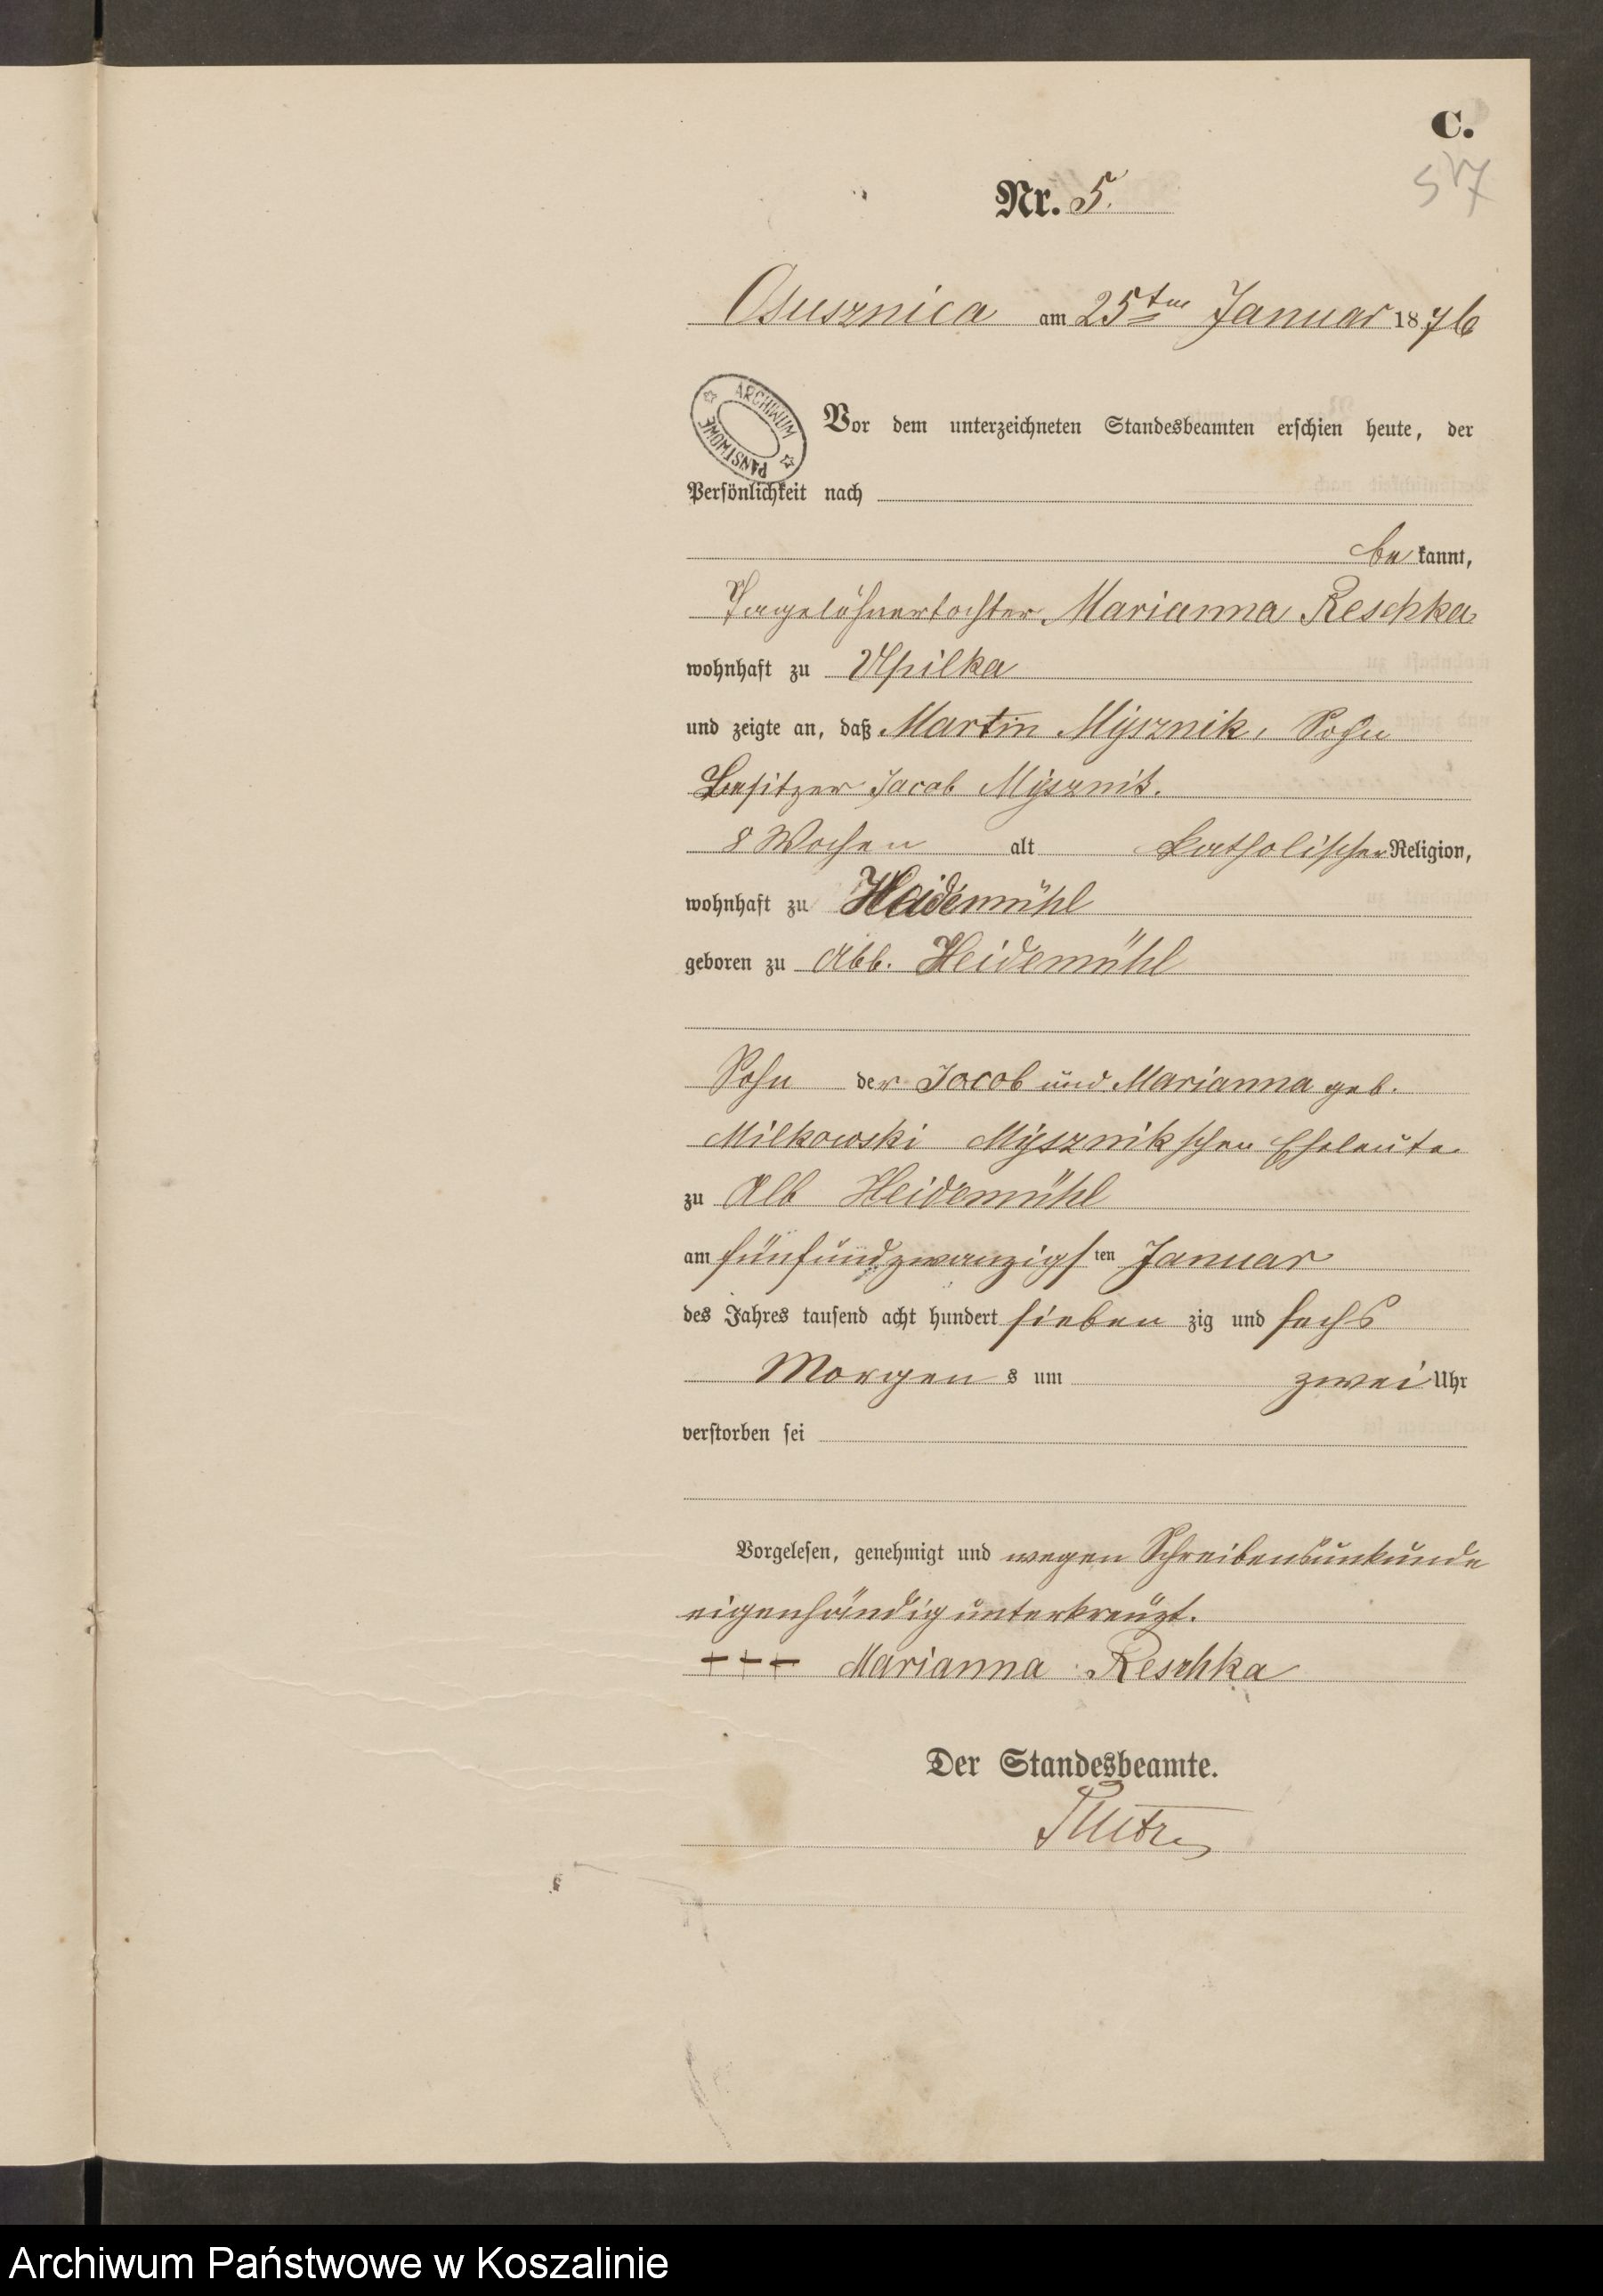 C.
57
Nr. 5.
Osusznica am 25ten Januar 1876
ARCHIWUM PAŃSTWOWE
Vor dem unterzeichneten Standesbeamten erschien heute, der
Persönlichkeit nach
be kannt,
Tagelöhnertochter Marianna Reschka
wohnhaft zu Upilka
und zeigte an, daß Martin Mysznik, Sohn
Besitzer Jacob Mysznik.
8 Wochen alt katholischer Religion,
wohnhaft zu Heidemühl
geboren zu Abb. Heidemühl
Sohn der Jacob und Marianna geb.
Milkowski Mysznikschen Eheleute
zu Abb Heidemühl
am fünfundzwanzigsten Januar
des Jahres tausend acht hundert sieben zig und sechs
Morgens um zwei Uhr
verstorben sei
Vorgelesen, genehmigt und wegen Schreibensunkunde
eigenhändig unterkreuzt.
+++ Marianna Reschka
Der Standesbeamte.
Archiwum Państwowe w Koszalinie